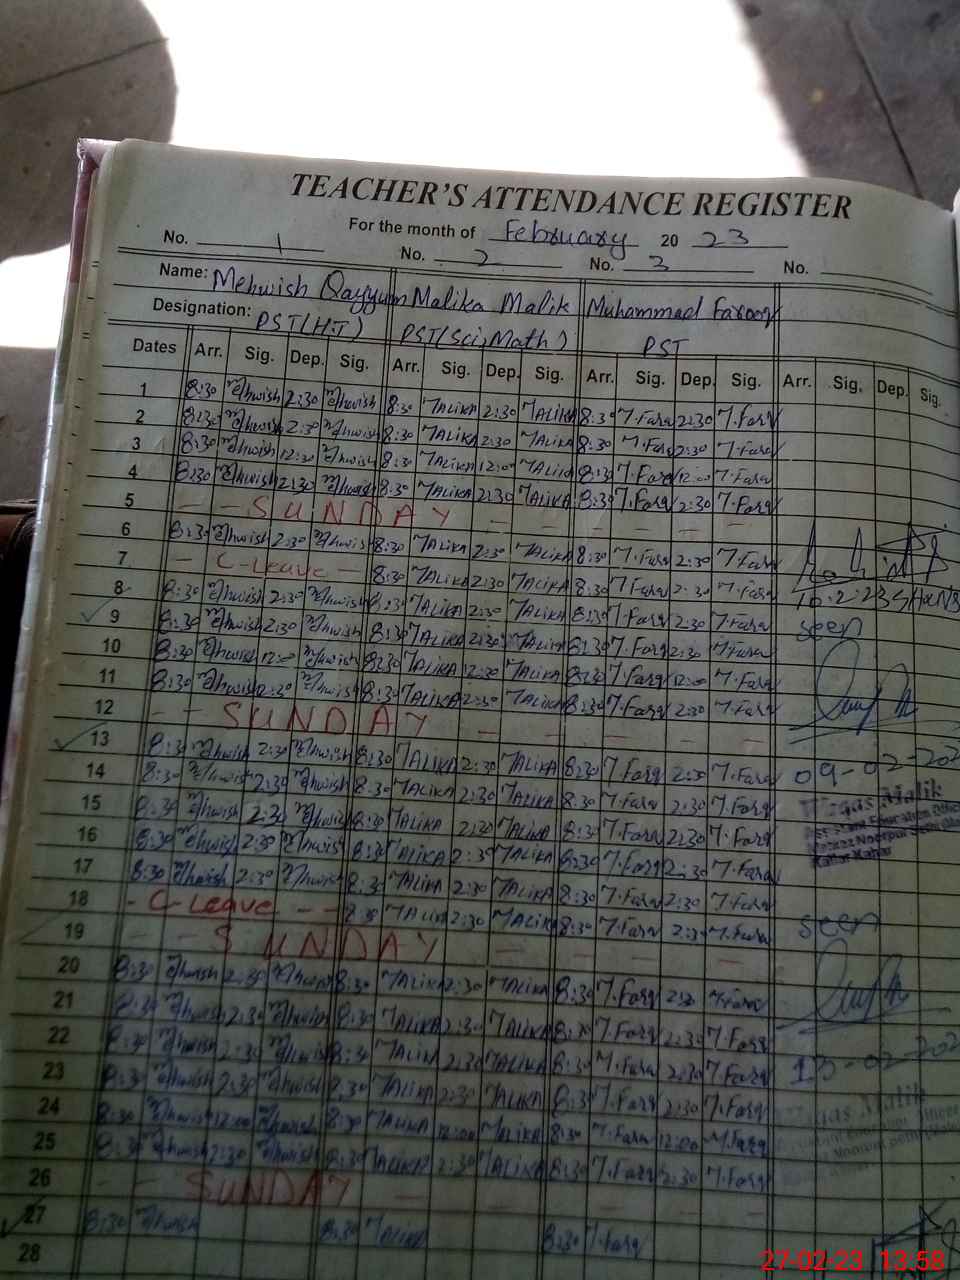 TEACHER'S ATTENDANCE REGISTER
For the month of February 20 23
No. 1 No. 2 No. 3 No.
Name: Mehwish Qayyum Malika Malik Muhammad Farooq
Designation: PST(H.T) PST(Sci, Math) PST
Dates Arr. Sig. Dep. Sig. Arr. Sig. Dep. Sig. Arr. Sig. Dep. Sig. Arr. Sig. Dep. Sig.
1 8:30 Mehwish 2:30 Mehwish 8:30 MALIKA 2:30 MALIKA 8:30 M.Farq 2:30 M.Farq
2 8:30 Mehwish 2:30 Mehwish 8:30 MALIKA 2:30 MALIKA 8:30 M.Farq 2:30 M.Farq
3 8:30 Mehwish 12:30 Mehwish 8:30 MALIKA 12:00 MALIKA 8:30 M.Farq 12:00 M.Farq
4 8:30 Mehwish 2:30 Mehwish 8:30 MALIKA 2:30 MALIKA 8:30 M.Farq 2:30 M.Farq
5 - - SUNDAY - - - - - -
6 8:30 Mehwish 2:30 Mehwish 8:30 MALIKA 2:30 MALIKA 8:30 M.Farq 2:30 M.Farq
7 - C-Leave - 8:30 MALIKA 2:30 MALIKA 8:30 M.Farq 2:30 M.Farq
8 8:30 Mehwish 2:30 Mehwish 8:30 MALIKA 2:30 MALIKA 8:30 M.Farq 2:30 M.Farq 10-2-23
9 8:30 Mehwish 2:30 Mehwish 8:30 MALIKA 2:30 MALIKA 8:30 M.Farq 2:30 M.Farq seen
10 8:30 Mehwish 12:00 Mehwish 8:30 MALIKA 12:00 MALIKA 8:30 M.Farq 12:00 M.Farq
11 8:30 Mehwish Mehwish 8:30 MALIKA 2:30 MALIKA 8:30 M.Farq 2:30 M.Farq
12 - - SUNDAY - - - - - -
13 8:30 Mehwish 2:30 Mehwish 8:30 MALIKA 2:30 MALIKA 8:30 M.Farq 2:30 M.Farq 09-02-202
14 8:30 Mehwish 2:30 Mehwish 8:30 MALIKA 2:30 MALIKA 8:30 M.Farq 2:30 M.Farq
Waqas Malik
15 8:30 Mehwish 2:30 Mehwish 8:30 MALIKA 2:30 MALIKA 8:30 M.Farq 2:30 M.Farq
Asst. Education Office
Markaz Noorpur
16 8:30 Mehwish 2:30 Mehwish 8:30 MALIKA 2:30 MALIKA 8:30 M.Farq 2:30 M.Farq
Kallar Kahar
17 8:30 Mehwish 2:30 Mehwish 8:30 MALIKA 2:30 MALIKA 8:30 M.Farq 2:30 M.Farq
18 - C-Leave - - 8:30 MALIKA 2:30 MALIKA 8:30 M.Farq 2:30 M.Farq seen
19 - - SUNDAY - - - - - -
20 8:30 Mehwish 2:30 Mehwish 8:30 MALIKA 2:30 MALIKA 8:30 M.Farq 2:30 M.Farq
21 8:30 Mehwish 2:30 Mehwish 8:30 MALIKA 2:30 MALIKA 8:30 M.Farq 2:30 M.Farq
22 8:30 Mehwish 2:30 Mehwish 8:30 MALIKA 2:30 MALIKA 8:30 M.Farq 2:30 M.Farq 13-02-202
23 8:30 Mehwish 2:30 Mehwish 8:30 MALIKA 2:30 MALIKA 8:30 M.Farq 2:30 M.Farq
Waqas Malik
24 8:30 Mehwish 12:00 Mehwish 8:30 MALIKA 12:00 MALIKA 8:30 M.Farq 12:00 M.Farq
25 8:30 Mehwish 2:30 Mehwish 8:30 MALIKA 2:30 MALIKA 8:30 M.Farq 2:30 M.Farq
26 - - SUNDAY - - - - - -
27 8:30 Mehwish 8:30 MALIKA 8:30 M.Farq
28
27-02-23 13:58